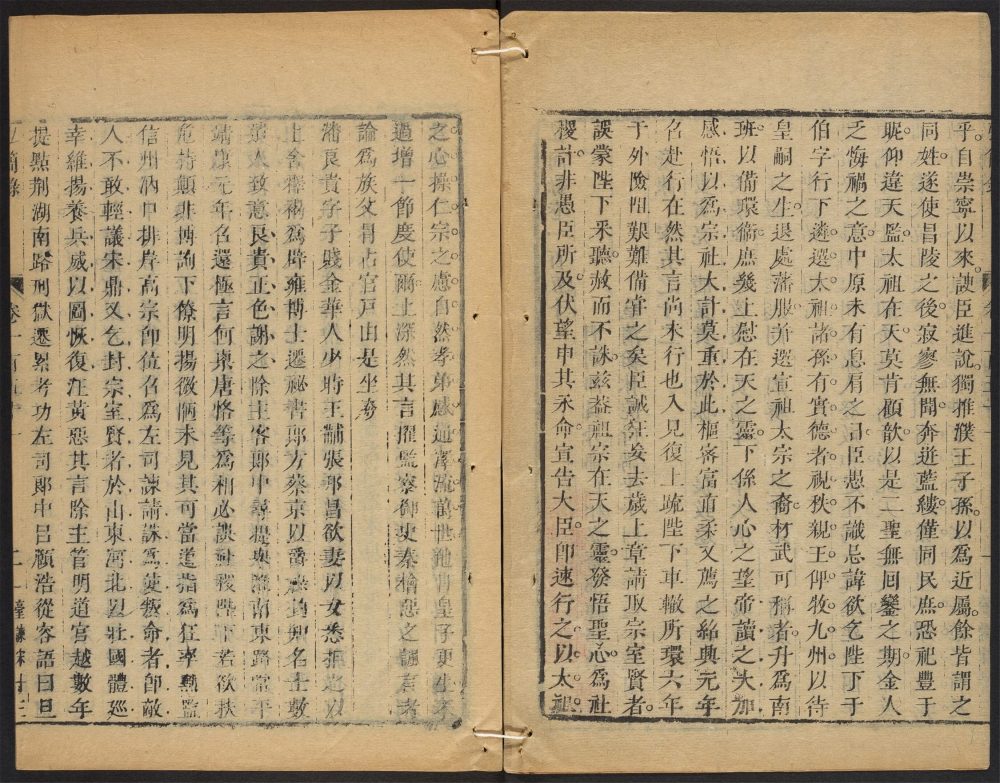 乎自崇寧以來諛臣進說獨推濮王子孫以爲近屬餘皆謂之
同姓遂使昌陵之後寂寥無聞奔迸藍縷僅同民庶恐祀豐于
昵仰違天監太祖在天莫肯顧歆以是二聖無回鑾之期金人
乏悔禍之意中原未有息肩之日臣愚不識忌諱欲乞陛下于
伯字行下遴選太祖諸孫有賢德者視秩親王俾牧九州以待
皇嗣之生退處藩服并選宣祖太宗之裔材武可稱者升爲南
班以備環衞庶幾上慰在天之靈下係人心之望帝讀之大加
感悟以爲宗社大計莫重於此樞密富直柔又薦之紹興元年
名赴行在然其言尚未行也入見復上疏陛下車轍所環六年
于外險阻艱難備甞之矣臣誠狂妄去歲上章請取宗室賢者
誤蒙陛下采聽赦而不誅茲葢祖宗在天之靈發悟聖心爲社
稷計非愚臣所及伏望申其永命宣告大臣卽速行之以太祖
之心操仁宗之慮自然孝弟感通澤流萬世他日皇子更生不
過增一節度使爾上深然其言擢監察御史秦檜惡之諷言者
論爲族父冒占官戸由是坐奪
潘良貴字子賤金華人少時王黼張邦昌欲妻以女悉拒之以
上舍釋褐爲辟雍博士遷秘書郎方蔡京以
致意良貴正色謝之除主客郎中尋提舉淮南東路常平
靖康元年召還極言何㮚唐恪等爲相必誤社稷陛下若欲扶
危持顛非博詢下僚明揚微陋未見其可當道指爲狂率黜監
信州汭口排岸高宗卽位召爲左司諫請誅爲僞叛命者卽敵
人不敢輕議宋鼎又乞封宗室賢者於山東河北以壯國體廵
幸維揚養兵威以圖恢復汪黄惡其言除主管明道宮越數年
提點荆湖南路刑獄遷累考功左司郎中呂頤浩從容語曰旦
卷一百五十
二
臺諫宋十三